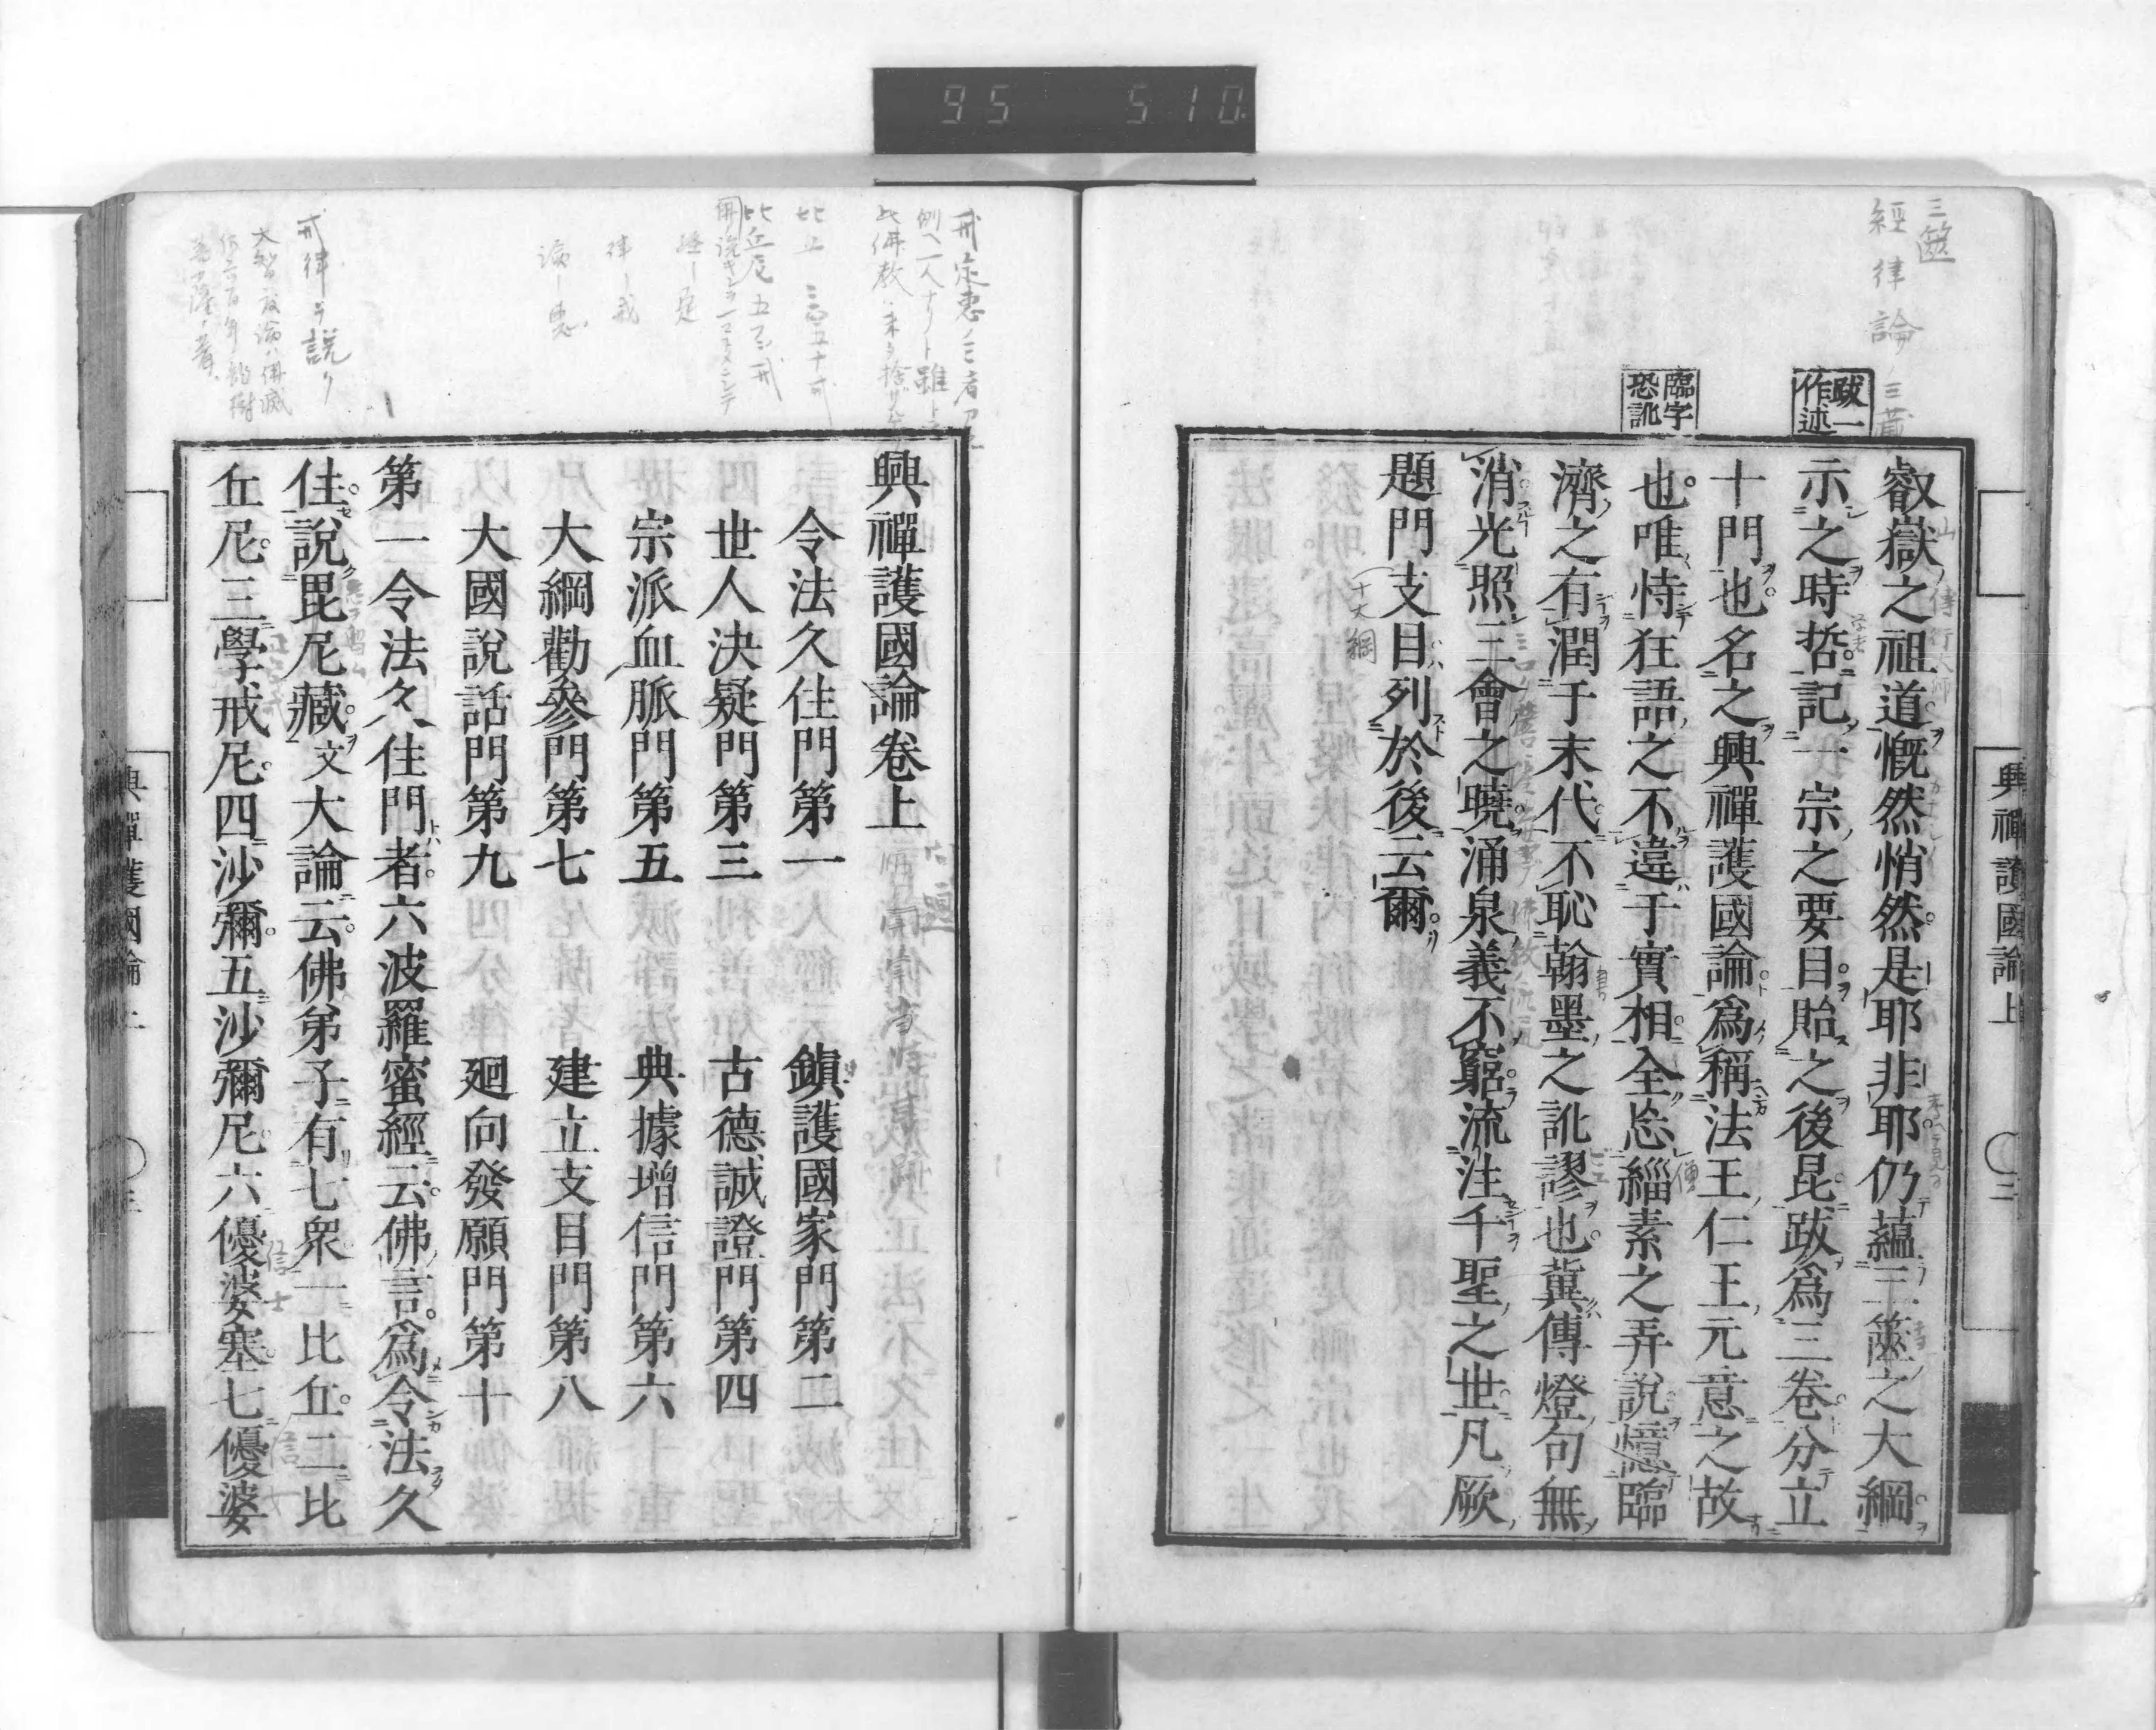 95 510
三篋
經律論ノ三藏
跋一作述
臨字恐訛
興禪護國論上
三
叡嶽之祖道慨然悄然是耶非耶仍蘊三篋之大綱
示之時哲記一宗之要目貽之後昆跋爲三卷分立
十門也名之興禪護國論爲稱法王仁王元意之故
也唯恃狂語之不違于實相全忘緇素之弄說憶臨
濟之有潤于末代不恥翰墨之訛謬也冀傳燈句無
消光照三會之曉涌泉義不窮流注千聖之世凡厥
題門支目列於後云爾
十大綱
興禪護國論卷上
令法久住門第一 鎭護國家門第二
世人決疑門第三 古德誠證門第四
宗派血脈門第五 典據增信門第六
大綱勸參門第七 建立支目門第八
大國說話門第九 廻向發願門第十
第一令法久住門者六波羅蜜經云佛言爲令法久
住說毘尼藏文大論云佛弟子有七衆一比丘二比
丘尼三學戒尼四沙彌五沙彌尼六優婆塞七優婆
戒律ヲ說ク
興禪護國論上
三